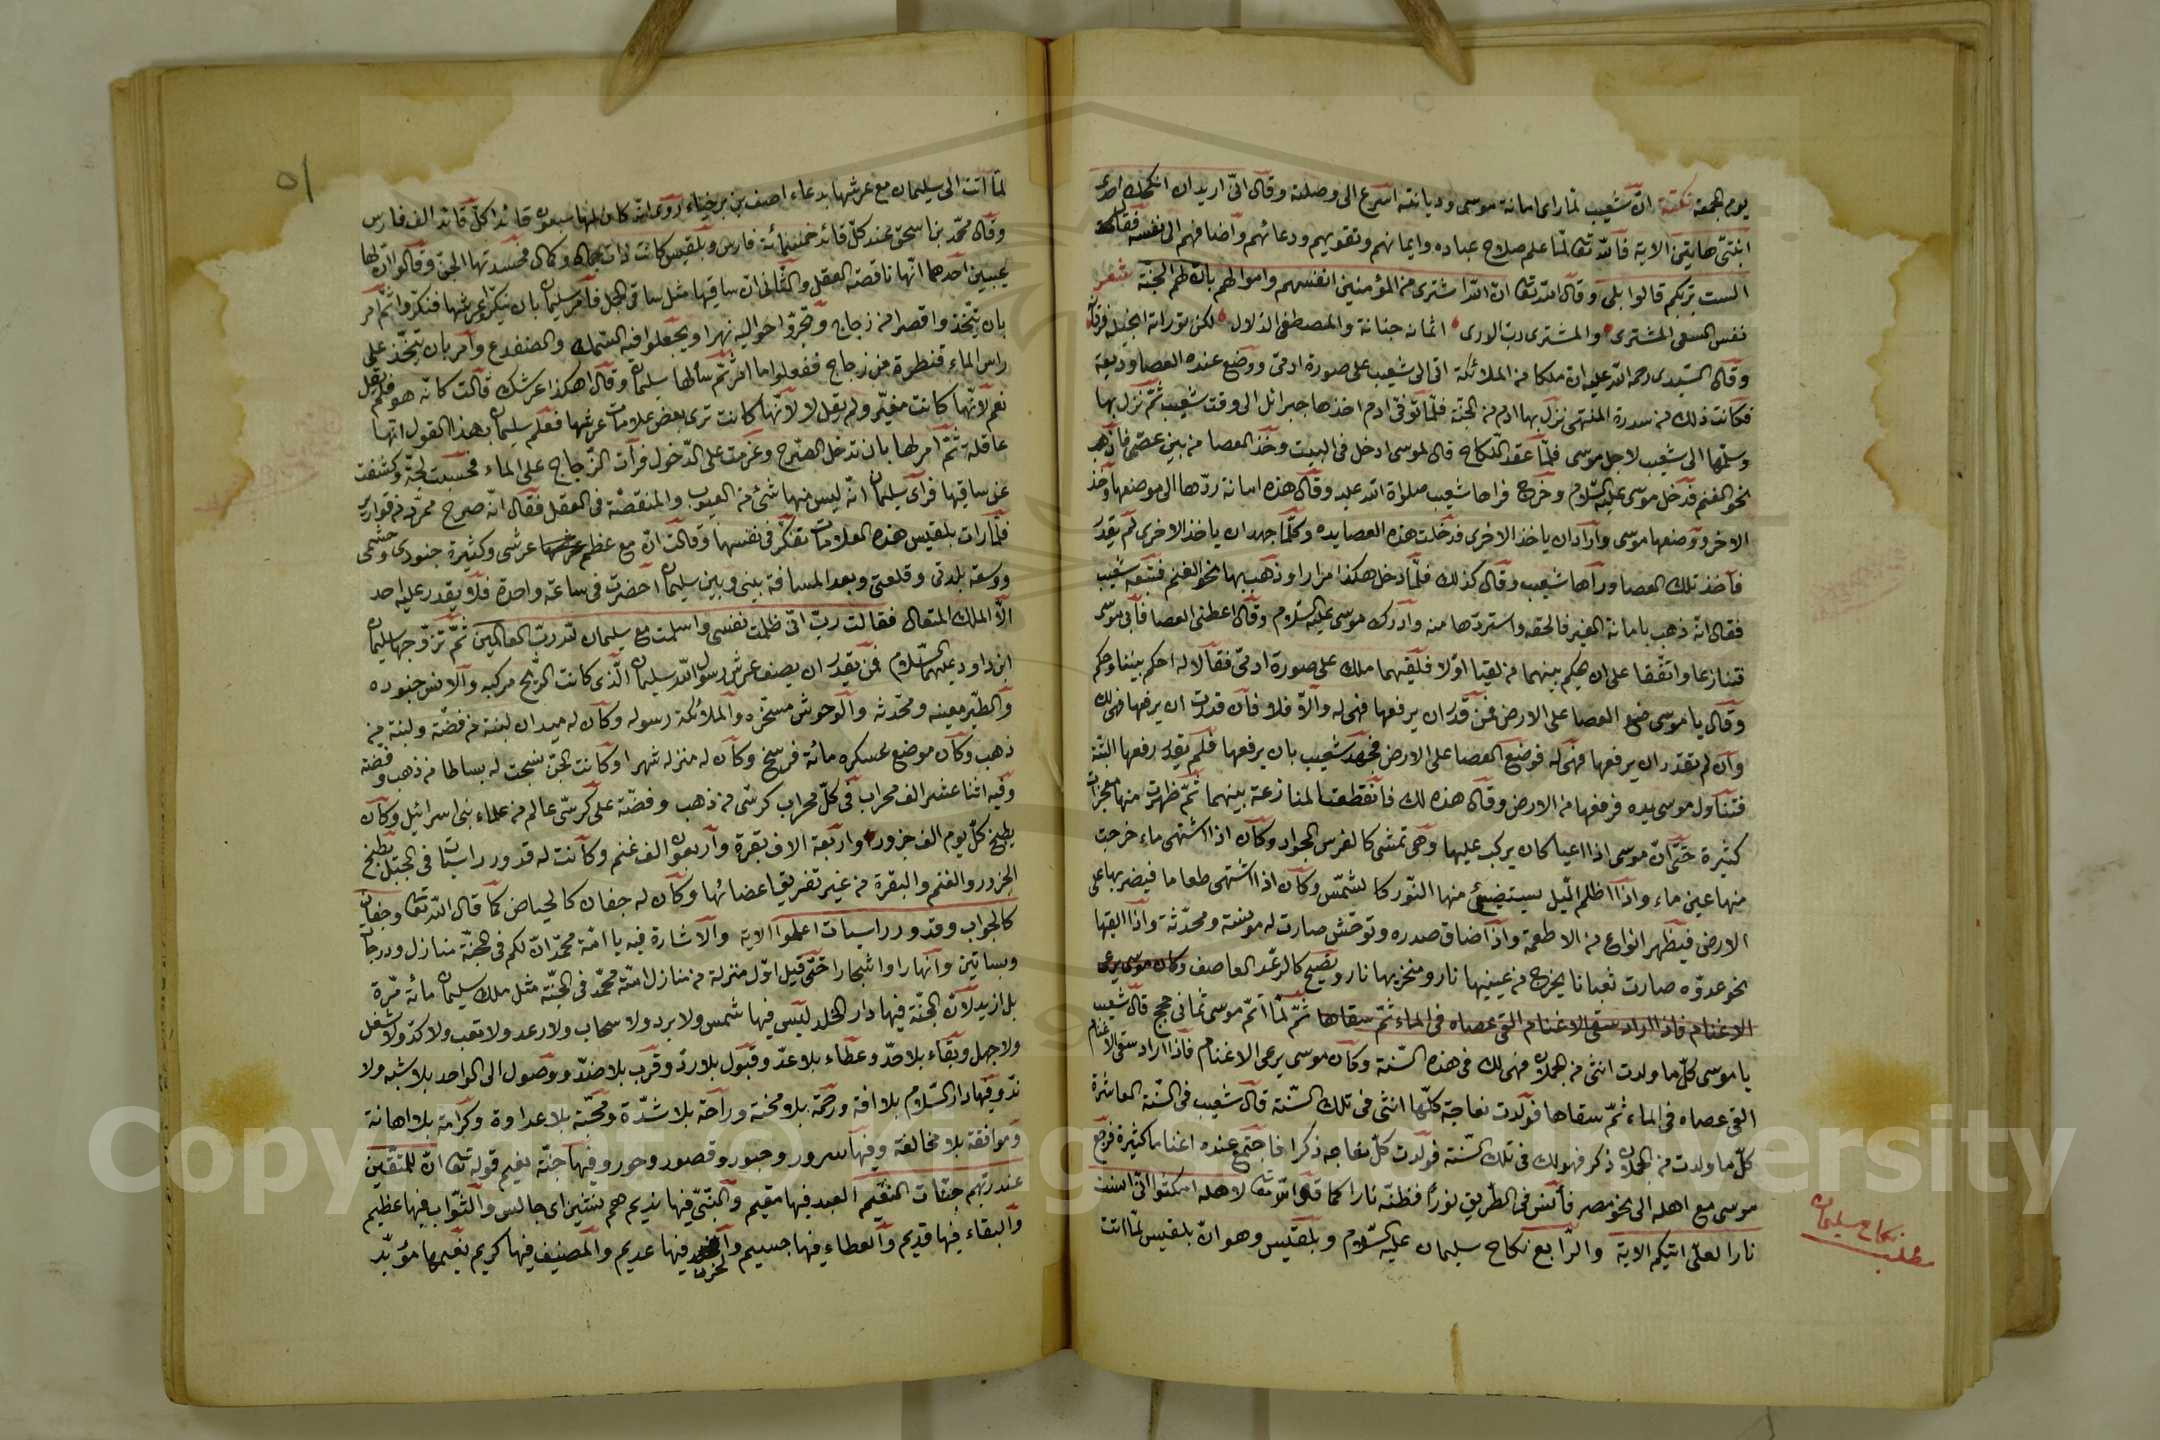 يوم الجمعة نكتة ان شعيب لما راى امانة موسى وديانته اسرع الى وصلته وقال انى اريد ان انكحك احدى
ابنتى هاتين الاية فالله تعالى لما علم صلاح عباده وايمانهم وتقويهم ودعائهم واضافهم الى نفسه فقال
الست بربكم قالوا بلى وقال الله تعالى ان الله اشترى من المؤمنين انفسهم واموالهم بان لهم الجنة شعر
نفس المشترى والمشترى رب الورى اثمانه جنانة والمصطفى الدلال لكن توراية انجيله
وقال السيدى رحمة الله عليه ان ملكا من الملائكة اتى الى شعيب على صورة ادمى ووضع عنده العصا وديعة
فكانت ذلك من سدرة المنتهى نزل بها ادم من الجنة فلما توفى ادم اخذها جبرائل الى وقت شعيب ثم نزل بها
وسلمها الى شعيب لاجل موسى فلما عقد النكاح قال لموسى ادخل فى البيت وخذ العصا من بين عصى فاذهب
نحو الغنم فدخل موسى عليه السلام وخرج فراها شعيب صلواة الله عليه وقال هذه امانة ردها الى موضعها وخذ
الاخر ووضعها موسى واراد ان ياخذ الاخرى فدخلت هذه العصا يده وكلما جهد ان ياخذ الاخرى لم يقدر
فاخذ تلك العصا ورآها شعيب وقال كذلك فلما دخل هكذا مرارا وذهب بها نحو الغنم فتبعه شعيب
فقال انه ذهب بامانة الغير فالحقه واستردها منه وادرك موسى عليه السلام وقال اعطنى العصا فابى موسى
فتنازعا واتفقا على ان يحكم بينهما من لقيا اولا فلقيهما ملك على صورة ادمى فقالا له احكم بيننا وحكم
وقال يا موسى ضع العصا على الارض فمن قدر ان يرفعها فهى له والا فلا فان قدرت ان يرفعها فهى لك
وان لم يقدر ان يرفعها فهى له فوضع العصا على الارض فجهد شعيب بان يرفعها فلم يقدر رفعها البتة
فتناول موسى بيده فرفعها من الارض وقال هذه لك فانقطعت المنازعة بينهما ثم ظهرت منها معجزات
كثيرة حتى ان موسى اذا اعيا كان يركب عليها وهى تمشى كالفرس الجواد وكان اذا اشتهى ماء خرجت
منها عين ماء واذا اظلم الليل يستضيئ منها النور كالشمس وكان اذا اشتهى طعاما فيضربها على
الارض فيظهر انواع من الاطعمة واذا ضاق صدره وتوحش صارت له مونسة ومحدثة واذا القيها
نحو عدوه صارت ثعبانا يخرج من عينيها نار ومنخريها نار ويصيح كالرعد العاصف وكان موسى يرعى
الاغنام فاذا اراد سقى الاغنام القى عصاه فى الماء ثم سقاها ثم لما اتم موسى ثمانى حجج قال شعيب
يا موسى كل ما ولدت انثى من الحملان فهى لك فى هذه السنة وكان موسى يرعى الاغنام فاذا اراد سقى الاغنام
القى عصاه فى الماء ثم سقاها فولدت نعاجته كلها انثى فى تلك السنة قال شعيب فى السنة العاشرة
كل ما ولدت من الحملان ذكر فهو لك فى تلك السنة فولدت كل نعاجه ذكرا فاجتمع عنده اغناما كثيرة فرجع
موسى مع اهله الى نحو مصر فآنس فى الطريق نورا فظنه نارا كما قال الله تعالى لاهله امكثوا انى انست
نارا لعلى اتيكم الاية والرابع نكاح سليمان عليه السلام وبلقيس وهو ان بلقيس لما اتت
نكاح سليمان
مطلب
٥١
لما اتت الى سليمان مع عرشها بدعاء اصف بن برخياء روى انه كان لها سبعون قائدا كل قائد الف فارس
وقال محمد بن اسحق عند كل قائد خمسمائة فارس وبلقيس كانت ذات جمال وكمال فحسدتها الجن وقالوا ان لها
عيبين احدهما انها ناقصة العقل والثانى ان ساقيها مثل ساق الجمل فامر سليمان بان ينكر عرشها فنكروا ثم امر
بان يتخذوا قصرا من زجاج وتجروا حواليه نهرا ويجعلوا فيه السمك والضفدع وامر بان يتخذ على
راس الماء قنطرة من زجاج ففعلوا ما امر ثم سألها سليمان وقال اهكذا عرشك قالت كانه هو فلم يقل
نعم لانها كانت مغير ولم يقل لا لانها كانت ترى بعض علامات عرشها فعلم سليمان بهذا القول انها
عاقلة ثم امر لها بان تدخل الصرح وعزمت على الدخول فرأت الزجاج على الماء فحسبت لجة وكشفت
عن ساقيها فرأى سليمان انه ليس منها شئ من العيوب والمنقصة فى العقل فقال انه صرح ممرد من قوارير
فلما رات بلقيس هذه العلامات تفكر فى نفسها وقالت ان مع عظم عرشى وكثيرة جنودى وحشمى
ووسعة بلدتى وقلعتى وبعد المسافة بينى وبين سليمان احضرت فى ساعة واحدة فلا يقدر عليه احد
الا الملك المتعال فقالت رب انى ظلمت نفسى واسلمت مع سليمان لله رب العالمين ثم تزوجها سليمان
ابن داود عليهما السلام فمن يقدر ان يصف عرش رسول الله سليمان الذى كانت الريح مركبه والانس جنوده
والطير معينه ومحدثه والوحوش مسخره والملائكة رسوله وكان له ميدان لبنة من فضة ولبنة من
ذهب وكان موضع عسكره مائة فرسخ وكان له منزله شهرا وكانت الجن نسجت له بساطا من ذهب وفضة
وفيه اثنا عشر الف محراب فى كل محراب كرسى من ذهب وفضة على كرسى عالم من علماء بنى اسرائيل وكان
يطبخ كل يوم الف جزور واربعة الاف بقرة واربعون الف غنم وكانت له قدور راسيات فى الجبل يطبخ
الجزور والغنم والبقرة من غير تفريق اعضائها وكان له جفان كالحياض كما قال الله تعالى وجفان
كالجواب وقدور راسيات اعملوا الاية والاشارة فيه يا امة محمد ان لكم فى الجنة منازل ودرجات
وبساتين وانهارا واشجارا حتى قيل اول منزلة من منازل امة محمد فى الجنة مثل ملك سليمان مائة مرة
بل ازيد لان الجنة فيها دار الخلد ليس فيها شمس ولا برد ولا سحاب ولا رعد ولا تعب ولا كد ولا شغل
ولا جهل وبقاء بلا حد وعطاء بلا عد وقبول بلا رد وقرب بلا ضد ووصول الى الواحد بلا شبه ولا
ند وفيها دار السلام بلا افة ورحمة بلا محنة وراحة بلا شدة ومحبة بلا عداوة وكرامة بلا اهانة
وموافقة بلا مخالفة وفيها سرور وحبور وقصور وحور وفيها جنة نعيم قوله تعالى ان للمتقين
عند ربهم جنات النعيم العبد فيها مقيم والنبى فيها نديم هم منشين اى جالس والثواب فيها عظيم
والبقاء فيها قديم والعطاء فيها جسيم والحزن فيها عديم والمضيف فيها كريم نعيمها مؤبد
Copyright © King Saud University